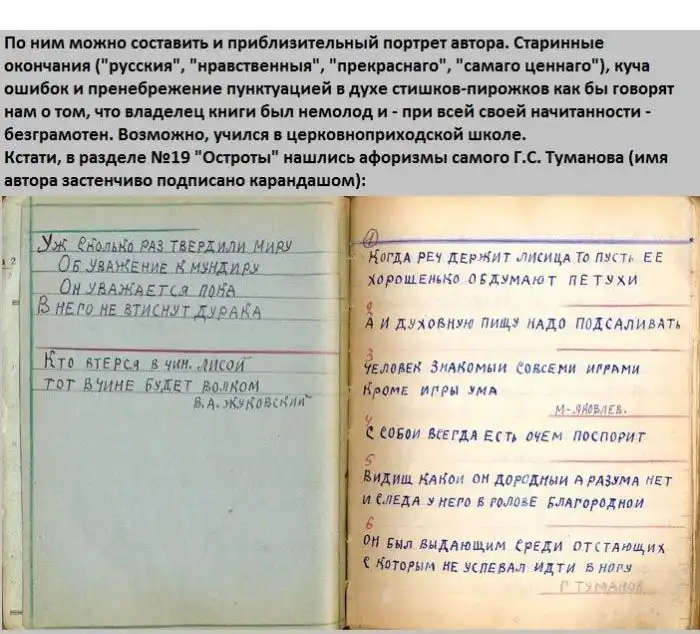 По ним можно составить и приблизительный портрет автора. Старинные
окончания ("русския", "нравственныя", "прекраснаго", "самаго ценнаго"), куча
ошибок и пренебрежение пунктуацией в духе стишков-пирожков как бы говорят
нам о том, что владелец книги был немолод и - при всей своей начитанности -
безграмотен. Возможно, учился в церковноприходской школе.
Кстати, в разделе №19 "Остроты" нашлись афоризмы самого Г.С. Туманова (имя
автора застенчиво подписано карандашом):
УЖ СКОЛЬКО РАЗ ТВЕРДИЛИ МИРУ
ОБ УВАЖЕНИЕ К МУНДИРУ
ОН УВАЖАЕТСЯ ПОКА
В НЕГО НЕ ВТИСНУТ ДУРАКА
КТО ВТЕРСЯ В ЧИН. ЛИСОЙ
ТОТ В ЧИНЕ БУДЕТ ВОЛКОМ
В.А. ЖУКОВСКИЙ
1
КОГДА РЕЧ ДЕРЖИТ ЛИСИЦА ТО ПУСТЬ ЕЕ
ХОРОШЕНЬКО ОБДУМАЮТ ПЕТУХИ
2
А И ДУХОВНУЮ ПИЩУ НАДО ПОДСАЛИВАТЬ
3
ЧЕЛОВЕК ЗНАКОМЫИ СОВСЕМИ ИГРАМИ
КРОМЕ ИГРЫ УМА
М-ЯКОВЛЕВ.
4
С СОБОИ ВСЕГДА ЕСТЬ ОЧЕМ ПОСПОРИТ
5
ВИДИШ КАКОИ ОН ДОРОДНЫИ А РАЗУМА НЕТ
И СЛЕДА У НЕГО В ГОЛОВЕ БЛАГОРОДНОИ
6
ОН БЫЛ ВЫДАЮЩИМ СРЕДИ ОТСТАЮЩИХ
С КОТОРЫМ НЕ УСПЕВАЛ ИДТИ В НОГУ
Г ТУМАНОВ